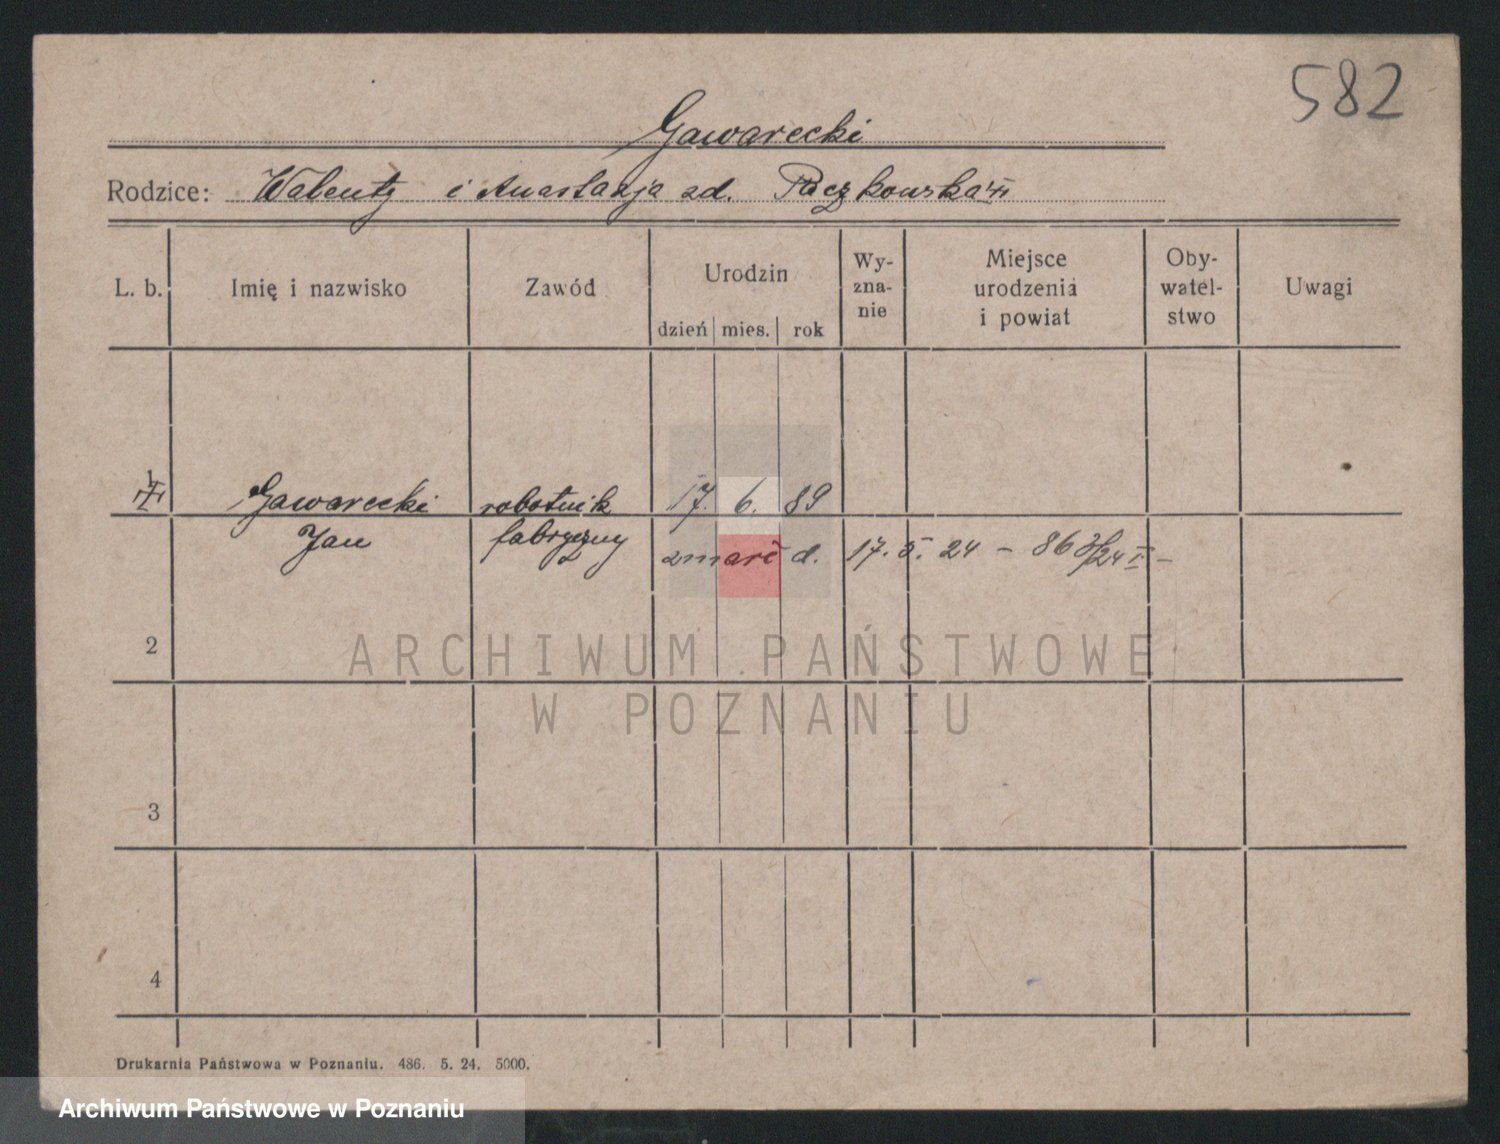 582
Gawarecki
Rodzice: Walenty i Anastazja zd. Paczkowska
L. b. Imię i nazwisko Zawód Urodzin dzień mies. rok Wy-zna-nie Miejsce urodzenia i powiat Oby-watel-stwo Uwagi
1 Gawarecki robotnik 17. 6. 89
Jan fabryczny zmarł d. 17. 5. 24 – 863/24
2
ARCHIWUM PAŃSTWOWE
W POZNANIU
3
4
Drukarnia Państwowa w Poznaniu. 486. 5. 24. 5000.
Archiwum Państwowe w Poznaniu